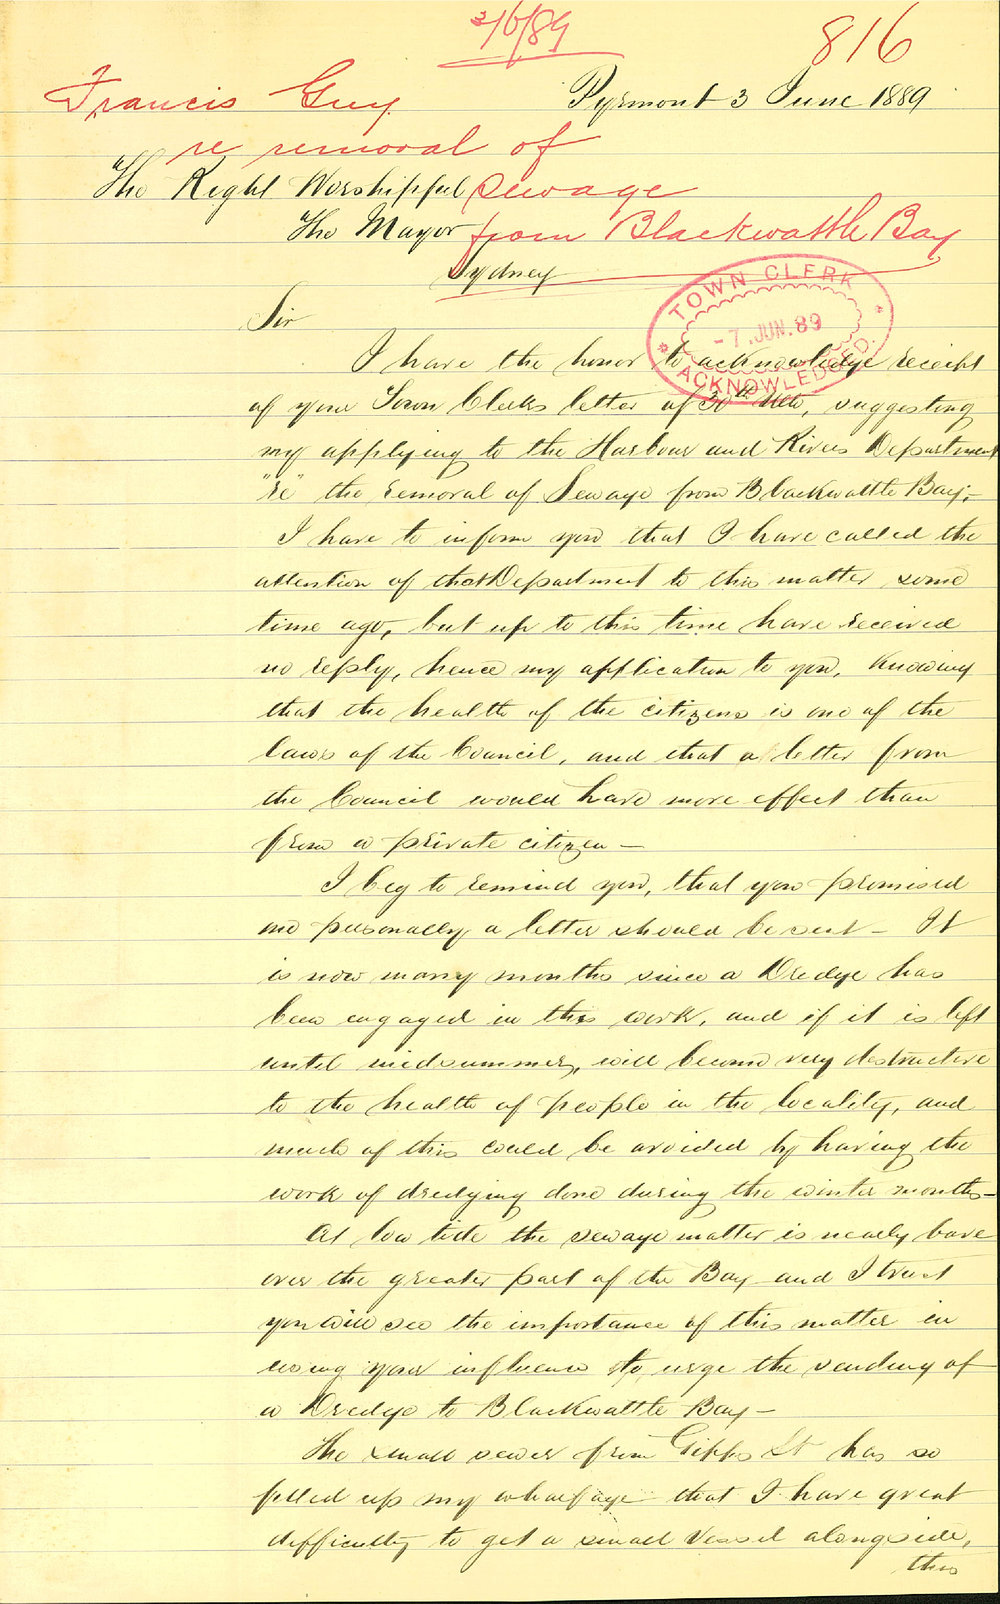 3/6/89
816
Francis Guy
Pyrmont 3 June 1889
re removal of
The Right Worshipful sewage
The Mayor from Blackwattle Bay
Sydney
TOWN CLERK
-7.JUN.89
ACKNOWLEDGED.
Sir
I have the honor to acknowledge receipt
of your Town Clerks letter of 30th Ulto, suggesting
my applying to the Harbour and Rivers Department
"re" the removal of Sewage from Blackwattle Bay,-
I have to inform you that I have called the
attention of that Department to this matter some
time ago, but up to this time have received
no reply, hence my application to you, knowing
that the health of the citizens is one of the
laws of the Council, and that a letter from
the Council would have more effect than
from a private citizen —
I beg to remind you, that you promised
me personally a letter should be sent — It
is now many months since a Dredge has
been engaged in this work, and if it is left
until midsummer, will become very destructive
to the health of people in the locality, and
much of this could be avoided by having the
work of dredging done during the winter months—
At low tide the sewage matter is nearly bare
over the greater part of the Bay and I trust
you will see the importance of this matter in
using your influence to urge the sending of
a Dredge to Blackwattle Bay —
The small sewer from Gipps St has so
filled up my wharfage that I have great
difficulty to get a small vessel alongside,
this